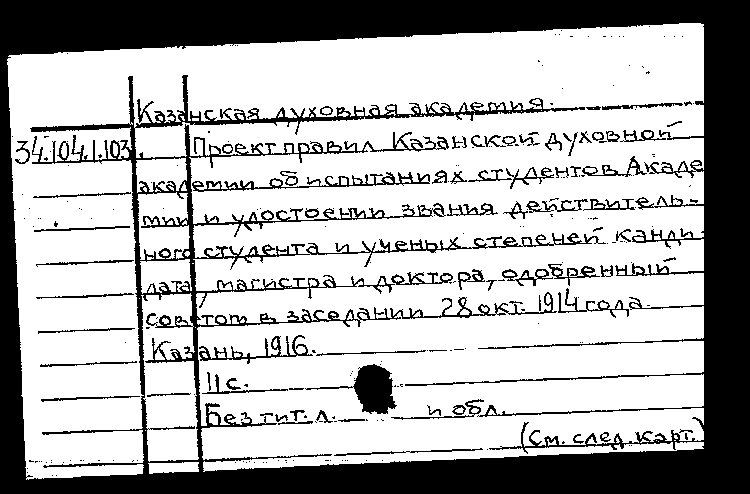 Казанская духовная академия.
34.104.1.103. Проект правил Казанской духовной
академии об испытаниях студентов Акаде
мии и удостоении звания действитель-
ного студента и ученых степеней канди-
дата, магистра и доктора, одобренный
советом в заседании 28 окт. 1914 года.
Казань, 1916.
11 с.
Без тит. л. и обл.
(См. след. карт.)